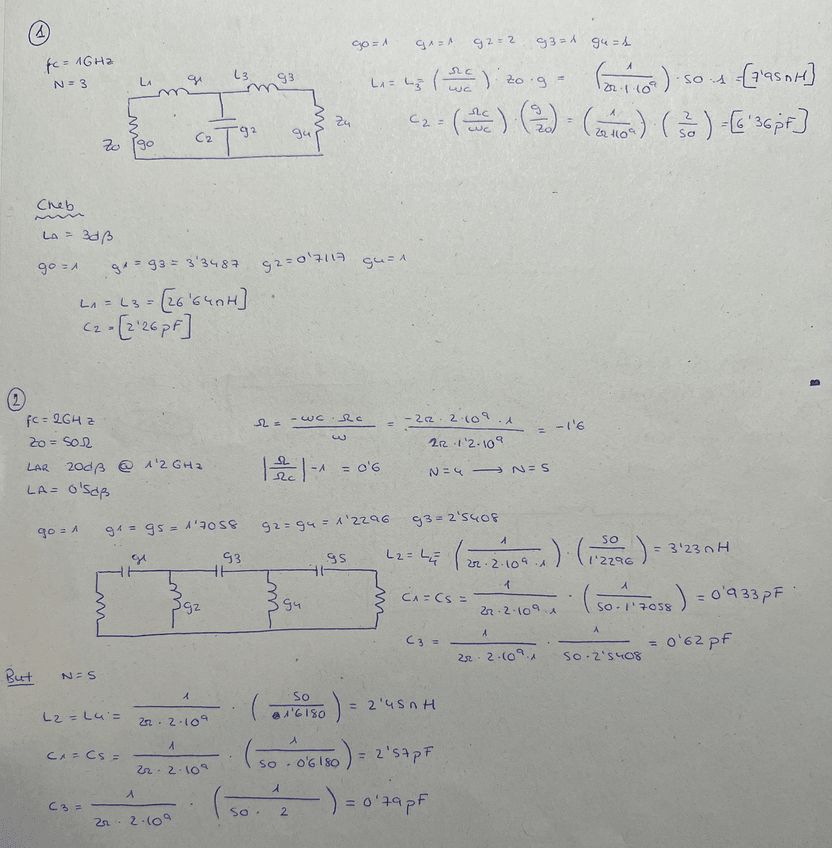 ①
fc = 1GHz
N = 3
g0=1 g1=1 g2=2 g3=1 g4=1
L1 = L3 = (Ωc/ωc) · Z0 · g = (1/2π·1·10⁹) · 50 · 1 = [7'95nH]
C2 = (Ωc/ωc) · (g/Z0) = (1/2π·1·10⁹) · (2/50) = [6'36pF]
L1 g1 L3 g3
Z0 g0 C2 g2 g4 Z4
Cheb
LA = 3dB
g0=1 g1=g3=3'3487 g2=0'7117 g4=1
L1 = L3 = [26'64nH]
C2 = [2'26pF]
②
fc = 2GHz
Z0 = 50Ω
LAR 20dB @ 1'2GHz
LA = 0'5dB
Ω = -ωc·Ωc/ω = -2π·2·10⁹·1/2π·1'2·10⁹ = -1'6
|Ω/Ωc|-1 = 0'6 N=4 → N=5
g0=1 g1=g5=1'7058 g2=g4=1'2296 g3=2'5408
g1 g3 g5
g2 g4
L2 = L4 = (1/2π·2·10⁹·1) · (50/1'2296) = 3'23nH
C1 = C5 = 1/2π·2·10⁹·1 · (1/50·1'7058) = 0'933pF
C3 = 1/2π·2·10⁹·1 · 1/50·2'5408 = 0'62pF
But N=5
L2 = L4 = 1/2π·2·10⁹ · (50/1'6180) = 2'45nH
C1 = C5 = 1/2π·2·10⁹ · (1/50·0'6180) = 2'57pF
C3 = 1/2π·2·10⁹ · (1/50·2) = 0'79pF